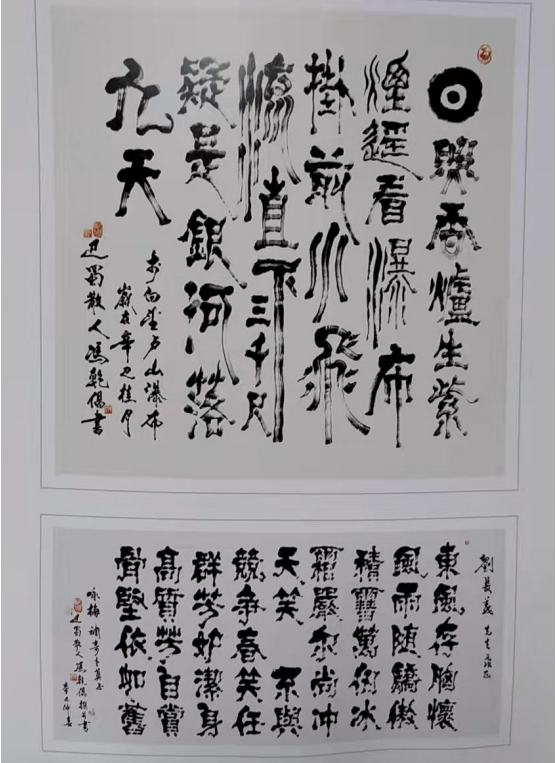 日照香爐生紫
煙遥看瀑布
掛前川飛
流直下三千尺
疑是銀河落
九天
李白望庐山瀑布
歲在辛巳桂月
巴蜀散人馮乾書
劉長義先生正
東風存胸懷
風雨随驕傲
積雪萬冰
霜嚴尔尚冲
天笑 不與
競争春笑任
群芳妒潔身
高質芳自賞
骨堅依如舊
詠梅
巴蜀散人馮乾書